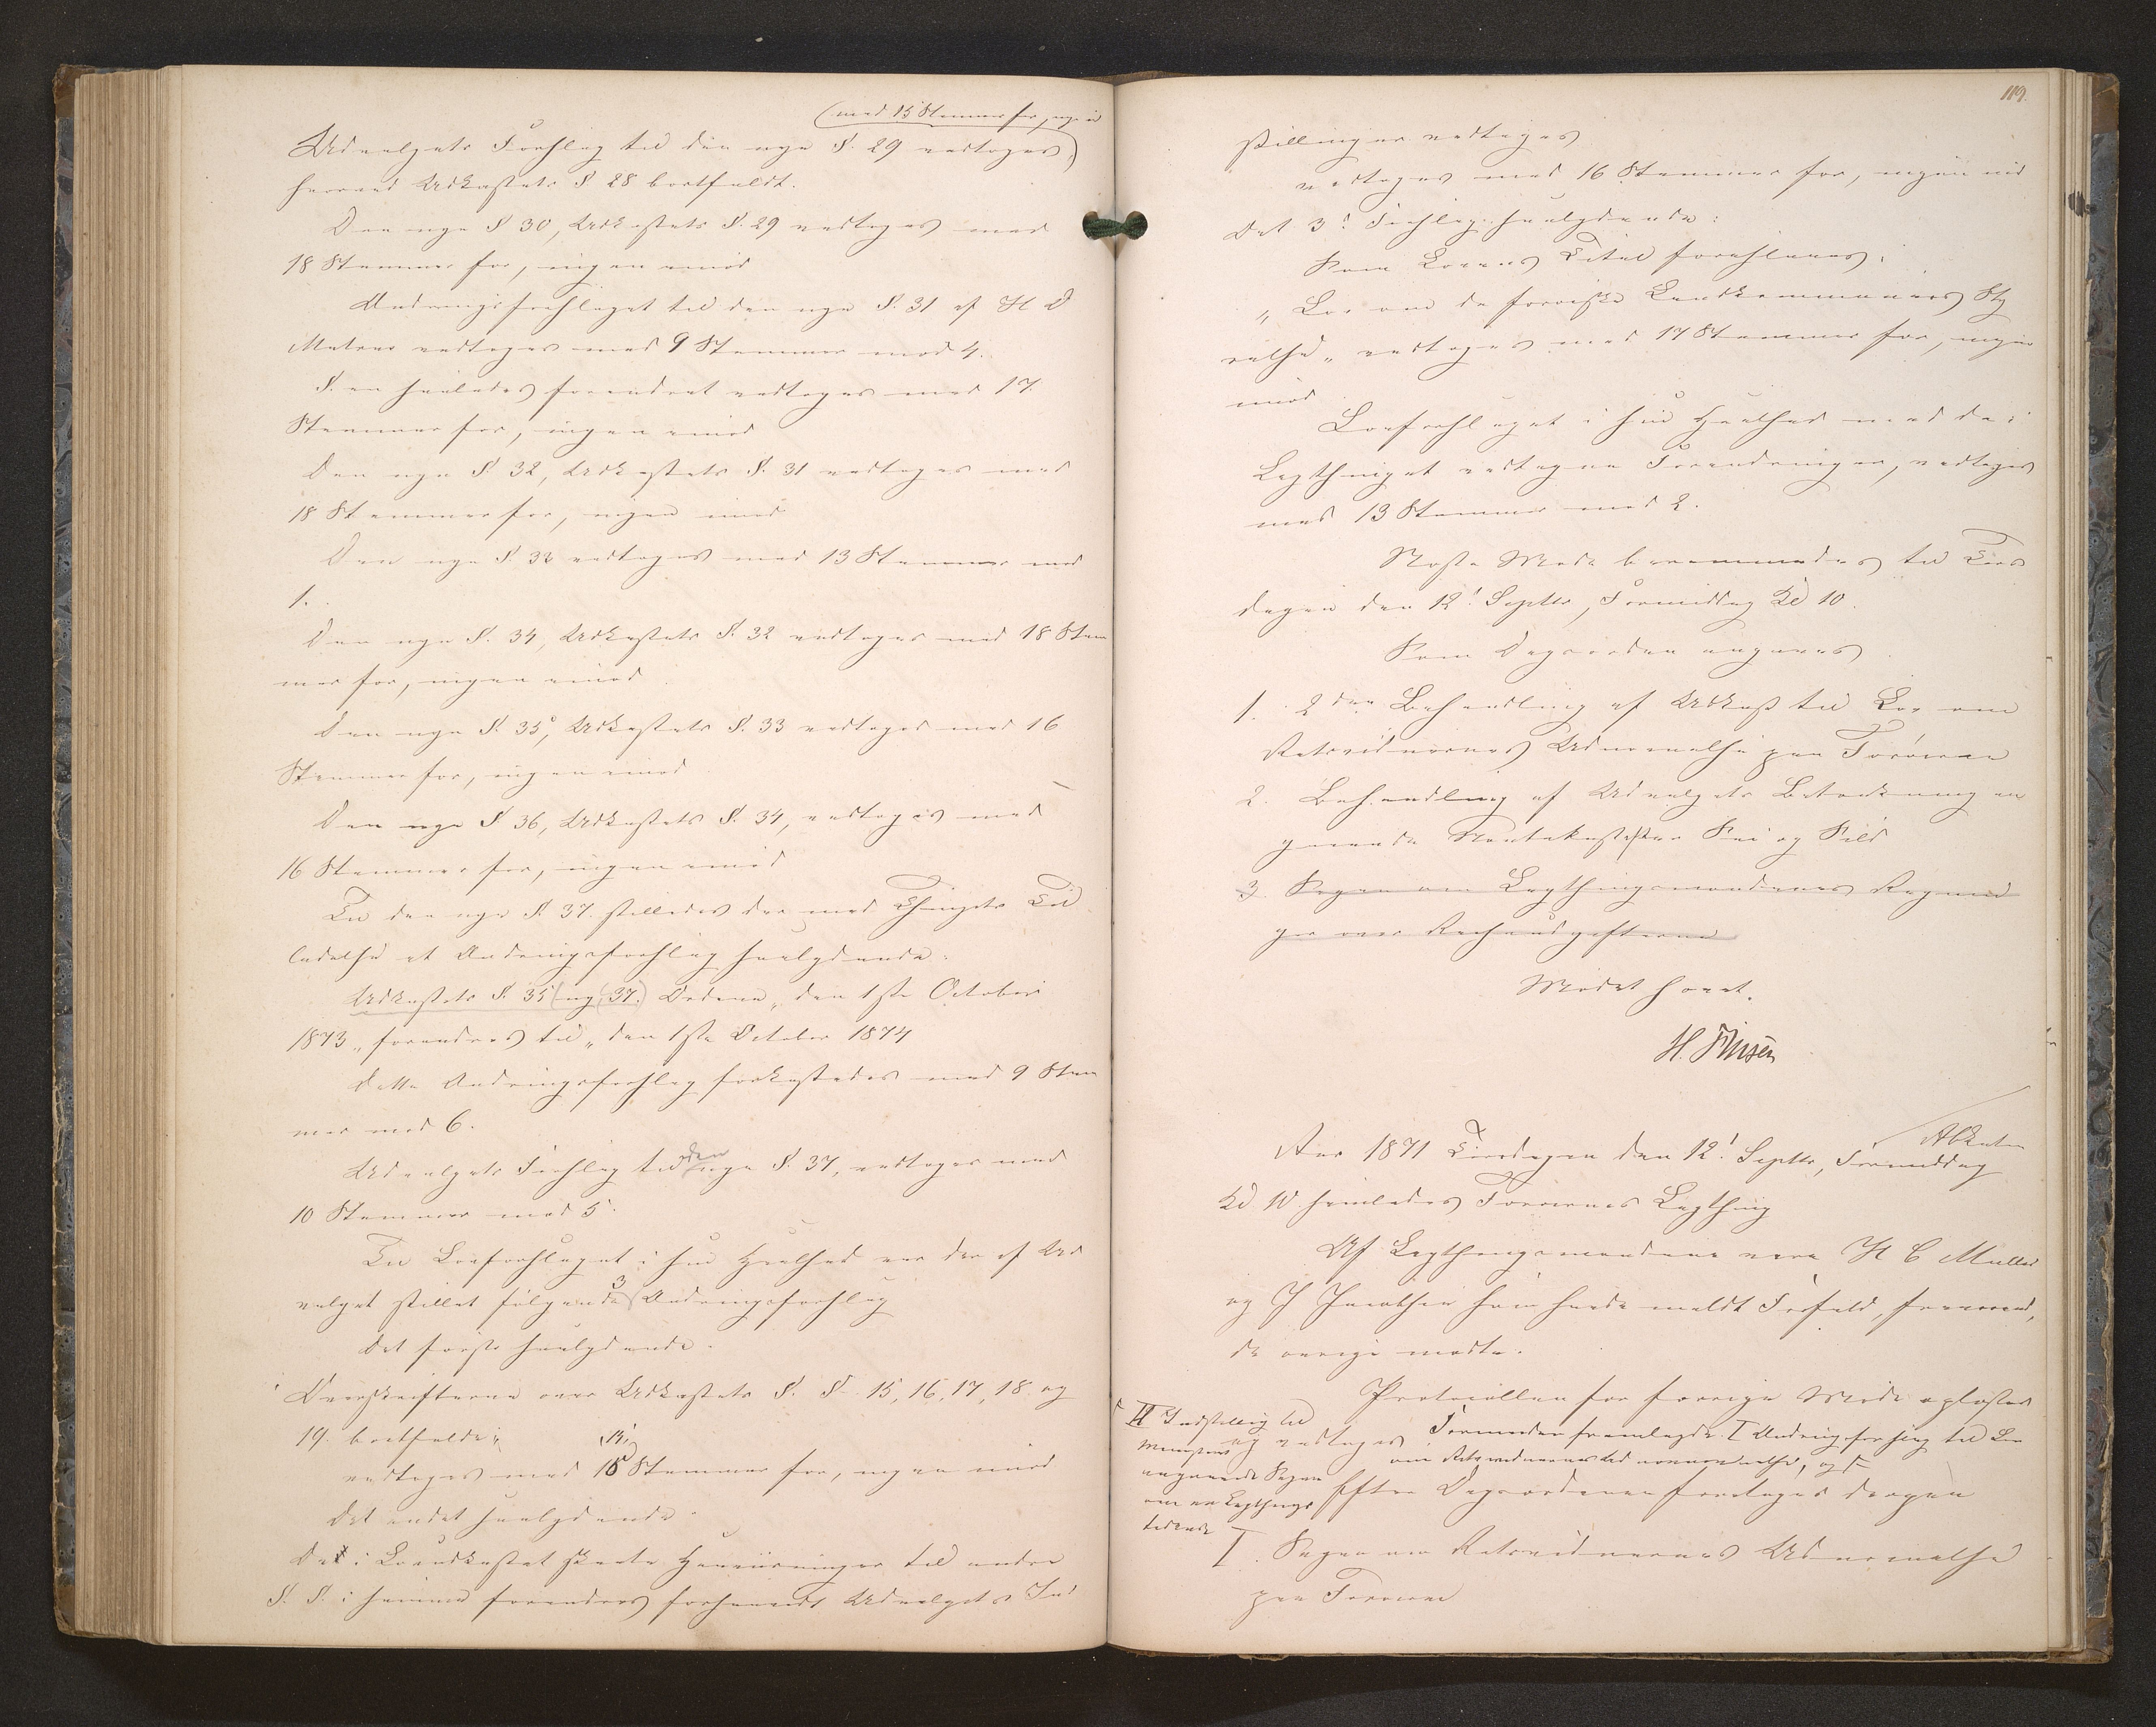 (med 15 Stemmer for, ingen imod
Udvalgets Forslag til den nye §. 29 vedtoges)
hvorved Udkastets § 28 bortfaldt.
Den nye § 30, Udkastets §. 29 vedtoges med
18 Stemmer for, ingen imod
Ændringsforslaget til den nye §. 31 af H D
Matras vedtoges med 9 Stemmer mod 4.
§.en saaledes forandret vedtoges med 17
Stemmer for, ingen imod
Den nye §. 32, Udkastets §. 31 vedtoges med
18 Stemmer for, ingen imod
Den nye §. 33 vedtoges med 13 Stemmer mod
1.
Den nye §. 34, Udkastets §. 32 vedtoges med 18 Stem
mer for, ingen imod.
Den nye §. 35, Udkastets §. 33 vedtoges med 16
Stemmer for, ingen imod
Den nye § 36, Udkastets §. 34, vedtoges med
16 Stemmer for, ingen imod
Til den nye §. 37. stilledes der med Thingets Til
ladelse et Ændringsforslag saalydende:
Udkastets §. 35 (ny 37.) Ordene „den 1ste October
1873„ forandres til „den 1ste October 1874
Dette Ændringsforslag forkastedes med 9 Stem
mer mod 6.
Udvalgets Forslag til den nye §. 37, vedtoges med
10 Stemmer mod 5.
Til Lovforslaget i sin Heelhed var der af Ud
valget stillet følgende 3 Ændringsforslag
Det første saalydende.
Overskrifterne over Udkastets §. §. 15, 16, 17, 18 og
19. bortfalde;
vedtoges med 15 Stemmer for, ingen imod
Det andet saalydende:
De i Lovudkastet skeete Henviisninger til andre
§. §. i samme forandres forsaavidt Udvalgets Ind
119.
stillinger vedtages
vedtoges med 16 Stemmer for, ingen imod
Det 3d Forslag saalydende:
Som Lovens Titel foreslaaes:
„Lov om de færøiske Landkommuners Sty
relse„ vedtoges med 17 Stemmer for, ingen
imod
Lovforslaget i sin Heelhed med de i
Lagthinget vedtagne Forandringer, vedtoges
med 13 Stemmer mod 2.
Næste Møde berammedes til Tirs
dagen den 12t Septbr, Formiddag Kl 10.
Som Dagsorden angaves
1. 2den Behandling af Udkast til Lov om
Retsvidnernes Udnævnelse paa Færøerne
2. Behandling af Udvalgets Betænkning an
gaaende Notekastet efter Sei og Sild
3. Sagen om Lagthingsmændenes Regnin
ger over Reiseudgifterne
Mødet hævet.
H. Finsen
Aar 1871 Tirsdagen den 12t Septbr, Formiddag
Kl 10 samledes Færøernes Lagthing
Af Lagthingsmændene vare H C Müller
og J Jacobsen som havde meldt Forfald, fraværende,
de øvrige mødte.
Protocollen for forrige Møde oplæstes
og vedtoges Formanden fremlagde I Ændringsforslag til Lov
om Retsvidnernes Udnævnelse, og
II Indstilling til
Ministeriet
angaaende Sagen
om en Lagthings
tidende
Efter Dagsordenen foretoges dernæst
I. Sagen om Retsvidnernes Udnævnelse
paa Færøerne